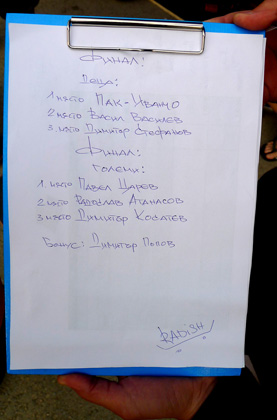 Финал:
Деца:
1 място Пак-Иванчо
2 място Васил Василев
3 място Димитър Стефанов
Финал:
Големи:
1. място Павел Царев
2 място Радослав Атанасов
3 място Димитър
Бонус: Димитър Попов
RADISH